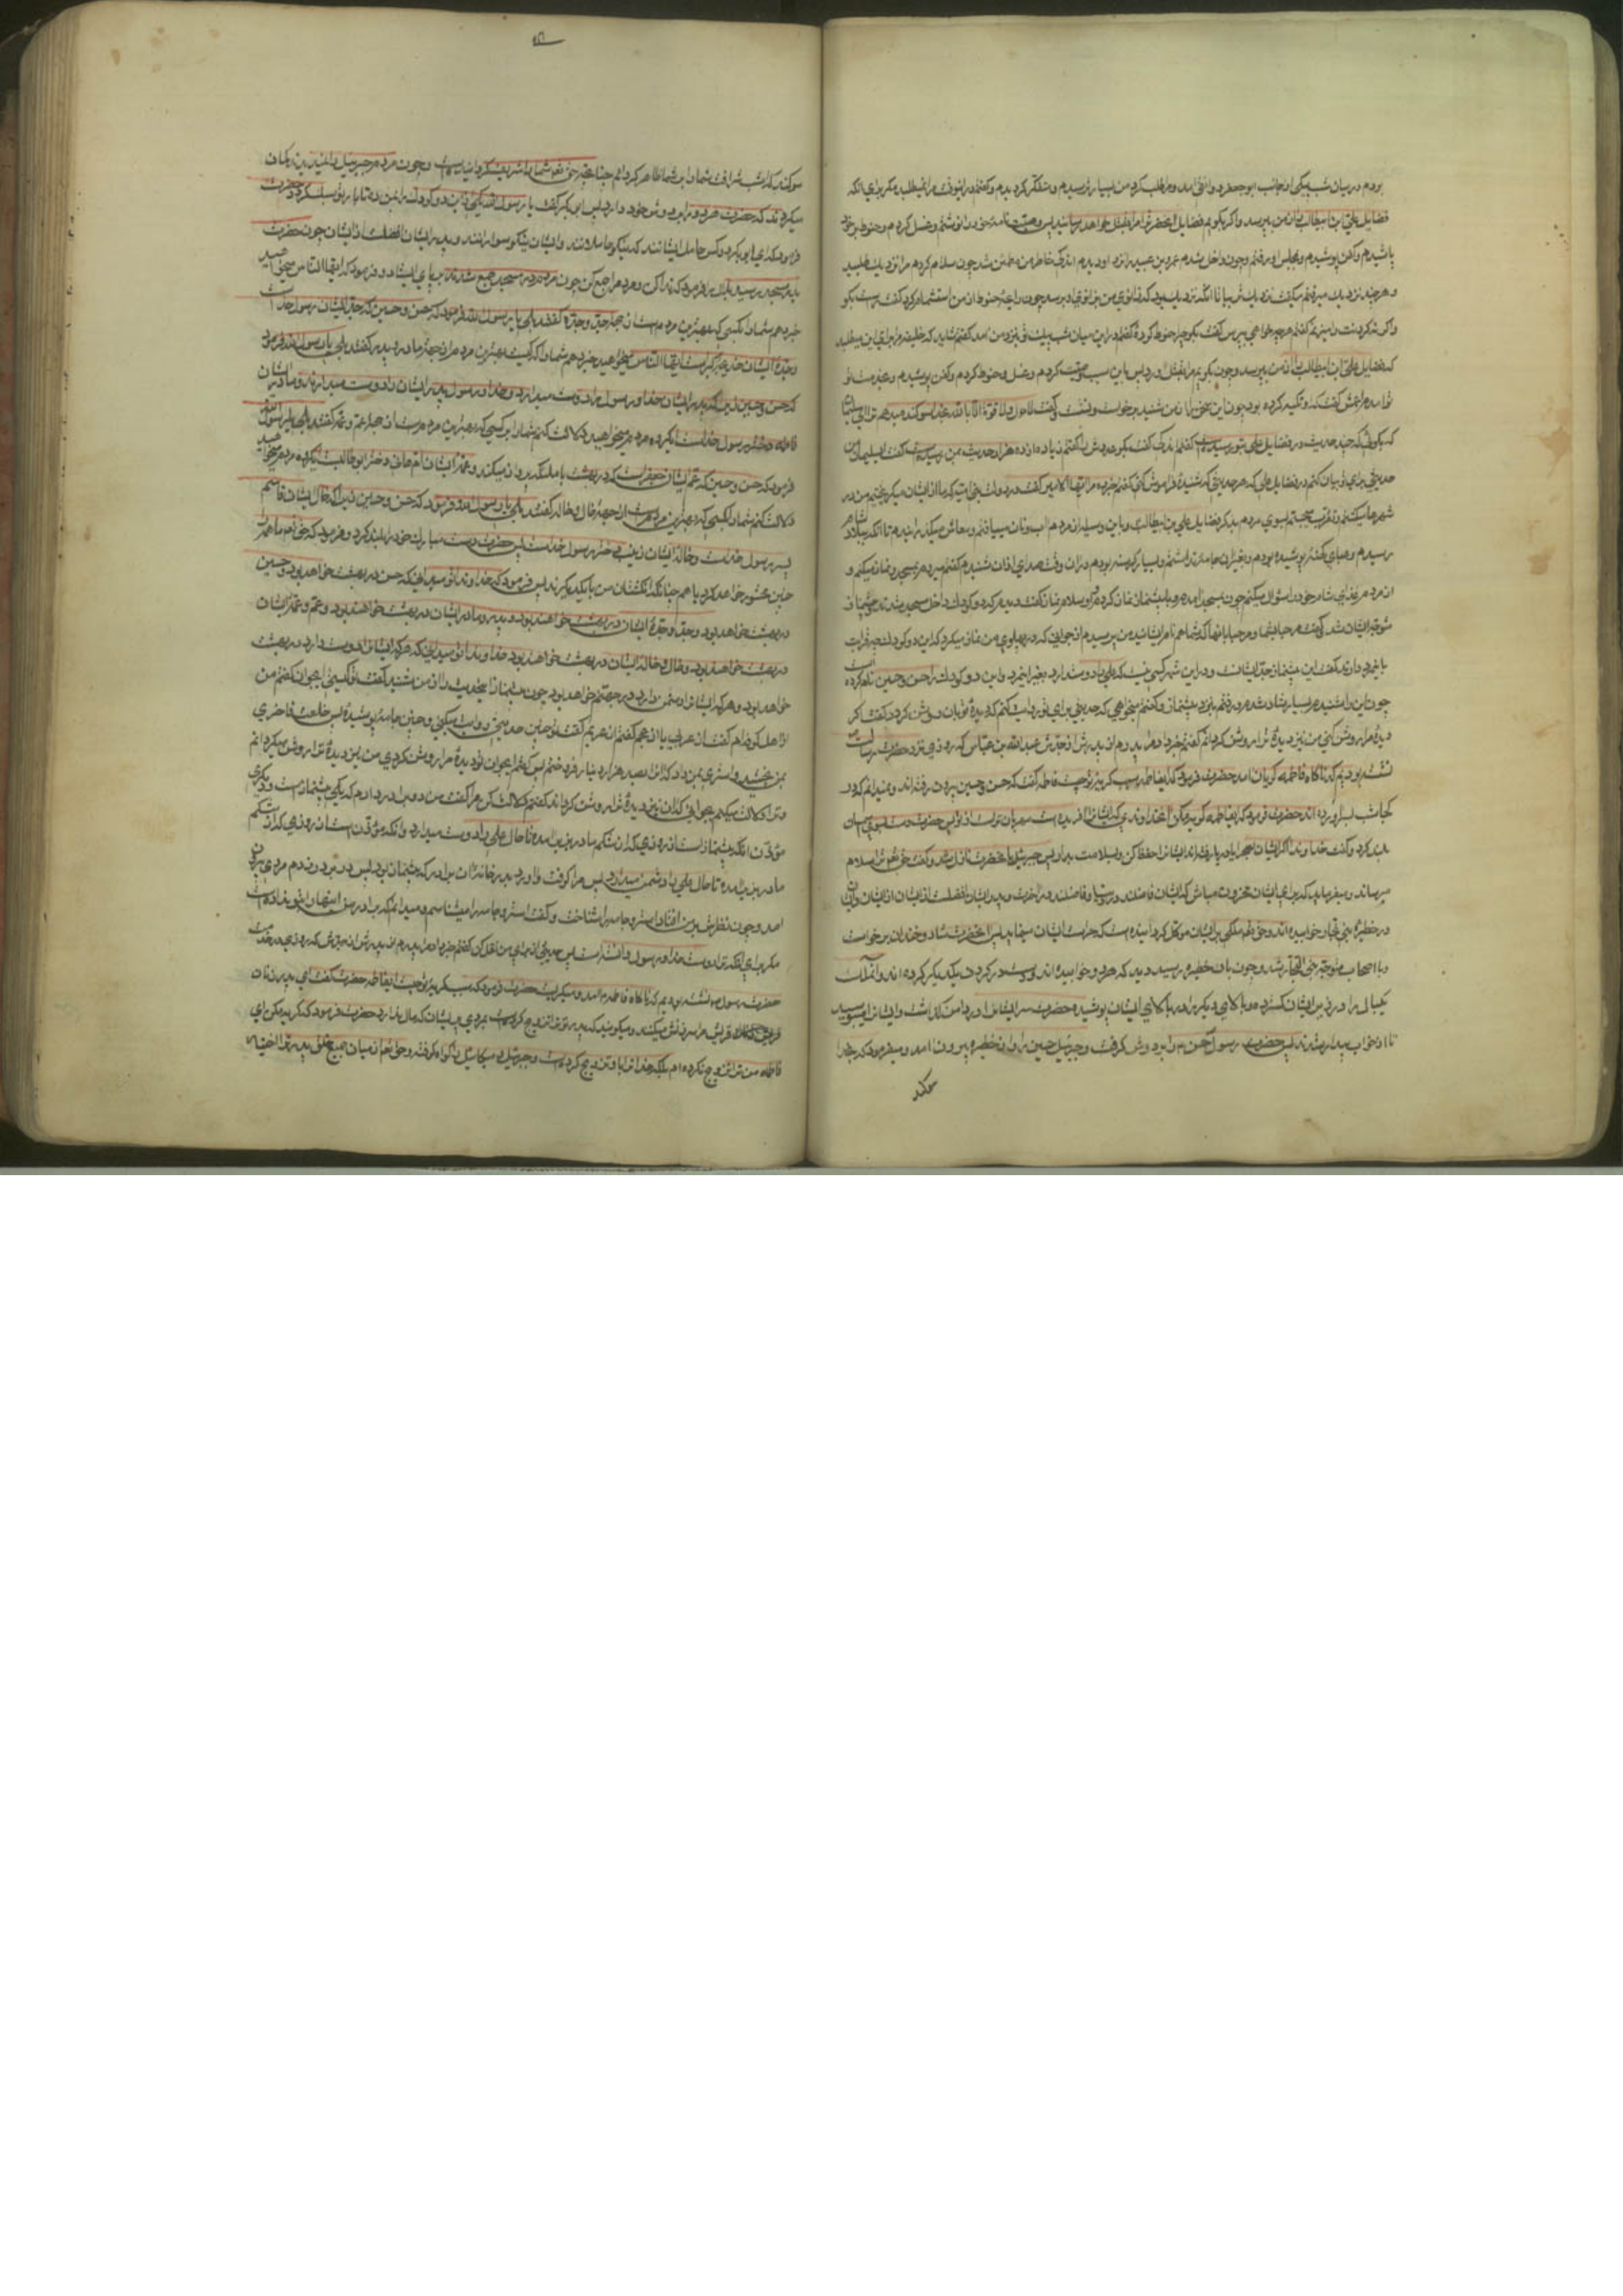 بودم در میان شب یکی از جانب ابو جعفر دوانقی آمد و مرا طلب کرد من بسیار ترسیدم و متفکر گردیدم و گفتم در اینوقت مرا نمیطلبد مگر برای آنکه
فضایل علی بن ابیطالب را از من بپرسد و اگر بگویم فضایل آنحضرت را مرا بقتل خواهد رسانید پس وصیت نامه خود را نوشتم و غسل کردم و حنوط بر خود
پاشیدم و کفن پوشیدم و بمجلس او رفتم و چون داخل شدم عمرو بن عبید را نزد او دیدم اندک خاطر من مطمئن شد چون سلام کردم مرا نزدیک طلبید
و هر چند نزدیک میرفتم میگفت نزدیکتر بیا تا آنکه نزدیک بود که زانوی من بزانوی او برسد چون رایحه حنوط از من استشمام کرد گفت راست بگو
و اگر نه گردنت را میزنم گفتم هر چه خواهی بپرس گفت بگو چرا حنوط کرده گفتم در این میان شب پیک تو نزد من آمد گفتم شاید که خلیفه مرا برای این میطلبد
که فضایل علی ابن ابیطالب را از من بپرسد و چون بگویم مرا بقتل آورد پس باین سبب وصیت کردم و غسل و حنوط کردم و کفن پوشیدم و بخدمت تو
آمدم اعمش گفت که او تکیه کرده بود چون این سخن را از من شنید برخواست و نشست و گفت لا حول و لا قوة الا بالله بخدا سوگند میدهم ترا ای سلیمان
که بگوئی که چند حدیث در فضایل علی بتو رسیده است گفتم اندکی گفت بگو چندش را گفتم زیاده از ده هزار حدیث بمن رسیده است گفت ای سلیمان من
حدیثی برای تو بیان کنم در فضایل علی که هر حدیثی که شنیده فراموش کنی گفتم خبر ده مرا ایها الامیر گفت در دولت بنی امیه که ما از ایشان میگریختیم من در
شهرها میگشتم و تقرب میجستم بسوی مردم بذکر فضایل علی بن ابیطالب و باین وسیله از مردم آب و نان مییافتم و معاش میگذرانیدم تا آنکه ببلاد شام
رسیدم و عبای کهنه پوشیده بودم و بغیر از آن جامه نداشتم و بسیار گرسنه بودم در آن وقت صدای اذان شنیدم گفتم میروم بمسجد و نماز میکنم و
از مردم غذای شام خود را سؤال میکنم چون بمسجد آمدم و با پیشنماز نماز کردم و او سلام نماز گفت دیدم که دو کودک داخل مسجد شدند پیشنماز
متوجه ایشان شد گفت مرحبا بشما و مرحبا بآنها که شما همنام ایشانید من پرسیدم از جوانی که در پهلوی من نماز میکرد که این دو کودک چه قرابت
باینمرد دارند گفت این پیشنماز جد ایشانست و در این شهر کسی نیست که علی را دوست دارد بغیر اینمرد و این دو کودک را حسن و حسین نام کرده است
چون این را شنیدم بسیار شاد شدم و رفتم بنزد پیشنماز و گفتم میخواهی که حدیثی برای تو روایت کنم که دیدۀ تو بآن روشن گردد گفت اگر
دیدۀ مرا روشن کنی من نیز دیدۀ ترا روشن گردانم گفتم خبر داد مرا پدرم از پدرش از جدش عبد الله بن عباس که روزی نزد حضرت رسالت
نشسته بودیم که ناگاه فاطمه گریان آمد حضرت فرمود که ایفاطمه سبب گریه تو چیست فاطمه گفت که حسن و حسین بیرون رفته اند و نمیدانم که در
کجا شب بسر آورده اند حضرت فرمود که ایفاطمه گریه مکن که خداوندی که ایشانرا آفریده است مهربان تر است از تو پس حضرت دست بسوی آسمان
بلند کرد و گفت خداوندا اگر ایشان بصحرا یا دریا رفته اند ایشانرا حفظ کن و بسلامت بدار پس جبرئیل بآنحضرت نازل شد و گفت حق تعالی ترا سلام
میرساند و میفرماید که برای ایشان محزون مباش که ایشان فاضلند در دنیا و فاضلند در آخرت و پدر ایشان افضلست از ایشان و ایشان
در حظیرۀ بنی نجار خوابیده اند و حق تعالی ملکی بر ایشان موکل گردانیده است که حراست ایشان مینماید پس آنحضرت شاد و خندان برخواست
و با اصحاب متوجه بنی النجار شد و چون بآن حظیره رسید دید که هر دو خوابیده اند و دست در گردن یکدیگر کرده اند و آنملک
یکبال را در زیر ایشان گسترده و بال دیگر را بر بالای ایشان پوشیده حضرت سر ایشانرا در دامن گذاشت و ایشانرا میبوسید
تا از خواب بیدار شدند پس حضرت رسول حسن را بر دوش گرفت و جبرئیل حسین را و از حظیره بیرون آمد و میفرمود که بخدا
سوگند
سوگند که امشب شرافت شما را بر شما ظاهر گردانم چنانچه حق تعالی شما را شریف گردانیده است و چون مردم جبرئیل را نمیدیدند گمان
میکردند که حضرت هر دو را بر دوش خود دارد پس ابو بکر گفت یا رسول الله یکی از این دو کودک را بمن ده تا بار تو سبک گردد حضرت
فرمود که ای ابو بکر دو کس حامل ایشانند که نیکو حاملانند و ایشان نیکو سوارانند و پدر ایشان افضلست از ایشان چون حضرت
بدر مسجد رسید بلال را فرمود که ندا کن و مردم را جمع کن چون مردم در مسجد جمع شدند بر پای ایستاد و فرمود که ایها الناس میخواهید
خبر دهم شما را بکسی که بهترین مردمست از جهة جد و جده گفتند بلی یا رسول الله فرمود که حسن و حسین که جد ایشان رسول خداست
و جدۀ ایشان خدیجه کبری است ایها الناس میخواهید خبر دهم شما را که کیست بهترین مردم از جهة مادر و پدر گفتند بلی یا رسول الله فرمود
که حسن و حسین زیرا که پدر ایشان خدا و رسول را دوست میدارد و خدا و رسول پدر ایشان را دوست میدارند و مادر ایشان
فاطمه دختر رسول خداست ای گروه مردم میخواهید دلالت کنم شما را بر کسی که بهترین مردمست از جهة عم و عمه گفتند بلی یا رسول الله
فرمود که حسن و حسین که عم ایشان جعفر است که در بهشت با ملئکه پرواز میکند و عمۀ ایشان ام هانی دختر ابو طالبست ای گروه مردم میخواهید
دلالت کنم شما را بکسی که بهترین مردمست از جهة خال و خاله گفتند بلی یا رسول الله فرمود که حسن و حسین زیرا که خال ایشان قاسم
پسر رسول خداست و خالۀ ایشان زینب دختر رسول خداست پس حضرت دست مبارک خود را بلند کرد و فرمود که حق تعالی ما همه را
چنین محشور خواهد کرد با هم چنانکه انگشتان من با یکدیگرند پس فرمود که خداوندا تو میدانی که حسن در بهشت خواهد بود و حسین
در بهشت خواهد بود و جد و جدۀ ایشان در بهشت خواهند بود و پدر و مادر ایشان در بهشت خواهند بود و عم و عمۀ ایشان
در بهشت خواهند بود و خال و خالۀ ایشان در بهشت خواهند بود خداوندا تو میدانی که هر که ایشانرا دوست دارد در بهشت
خواهد بود و هر که ایشانرا دشمن دارد در جهنم خواهد بود چون پیشنماز اینحدیث را از من شنید گفت تو کیستی ایجوان گفتم من
از اهل کوفه ام گفت از عربی یا از عجم گفتم از عربم گفت تو چنین حدیثی روایت میکنی و چنین جامه پوشیدۀ پس خلعت فاخری
بمن بخشید و استری بمن داد که آنرا بصد هزار دینار فروختم پس گفت ایجوان تو دیدۀ مرا روشن کردی من نیز دیدۀ ترا روشن میگردانم
و ترا دلالت میکنم بجوانی که او نیز دیدۀ ترا روشن گرداند گفتم دلالت کن مرا گفت من دو برادر دارم که یکی پیشنماز است و دیگری
مؤذن آنکه پیشنماز است از روزی که از شکم مادر بزیر آمده تا حال علی را دوست میدارد و آنکه مؤذن است از روزی که از شکم
مادر بزیر آمده تا حال علی را دشمن میدارد پس مرا گرفت و آورد بدر خانۀ آن برادر که پیشنماز بود پس در زدم مردی بیرون
آمد و چون نظرش بر من افتاد استر و جامه را شناخت و گفت استر و جامه را میشناسم و میدانم که برادر من اینها را بتو نداده است
مگر برای آنکه تو دوست خدا و رسول و اهل بیت پس حدیثی از برای من نقل کن گفتم خبر داد مرا پدرم از پدرش از جدش که روزی در خدمت
حضرت رسول نشسته بودیم که ناگاه فاطمه در آمد و میگریست حضرت فرمود که سبب گریه تو چیست ایفاطمه حضرت گفت ای پدر زنان
قریش مرا سرزنش میکنند و میگویند که پدر تو ترا تزویج کرده است بمردی پریشان که مال ندارد حضرت فرمود که گریه مکن ای
فاطمه من ترا تزویج نکرده ام بلکه خدا ترا باو تزویج کرده است و جبرئیل و میکائیل را گواه گرفته و حق تعالی از میان جمیع خلق پدر ترا اختیار